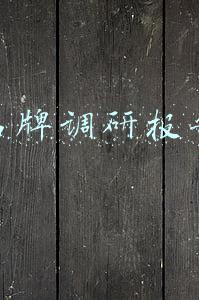 牌调研报